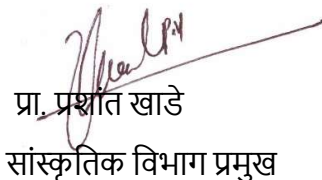 प्रा. प्रशांत खाडे
सांस्कृतिक विभाग प्रमुख